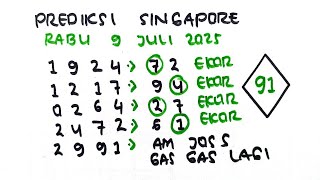 PREDIIKSI SINGAPORE
RABU 9 JULI 2025
1 9 2 4 > 7 2 EKOR
1 2 1 7 > 9 4 EKOR
0 2 6 4 > 2 7 EKOR
2 4 7 2 > 6 1 EKOR
2 9 9 1 > AM JOSS
GAS GAS LAGI
91